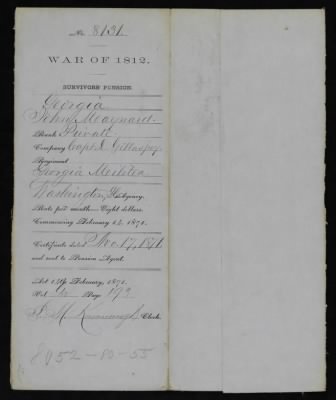 No. 8131
WAR OF 1812.
SURVIVORS' PENSION.
Georgia
John Maynard
Rank Private
Company Capt.
Regiment
Georgia Militia
Washington Agency.
Rate per month—Eight dollars.
Commencing February 14, 1871.
Certificate dated Nov. 17, 1871
and sent to Pension Agent.
Act 14th February, 1871.
Vol. Page 179
Clerk.